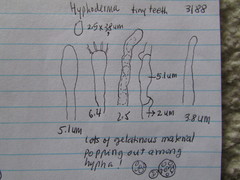 Hyphoderma tiny teeth 3188
2.5 x 3.8 um
5.1um
6.4
2.5
2um
3.8um
5.1um
Lots of gelatinous material
popping out among
hypha!